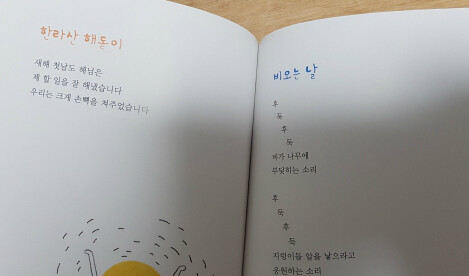 한라산 해돋이
새해 첫날도 해님은
제 할 일을 잘 해냈습니다
우리는 크게 손뼉을 쳐주었습니다
비오는 날
후
둑
후
둑
비가 나무에
부딪히는 소리
후
둑
후
둑
지렁이들 알을 낳으라고
응원하는 소리